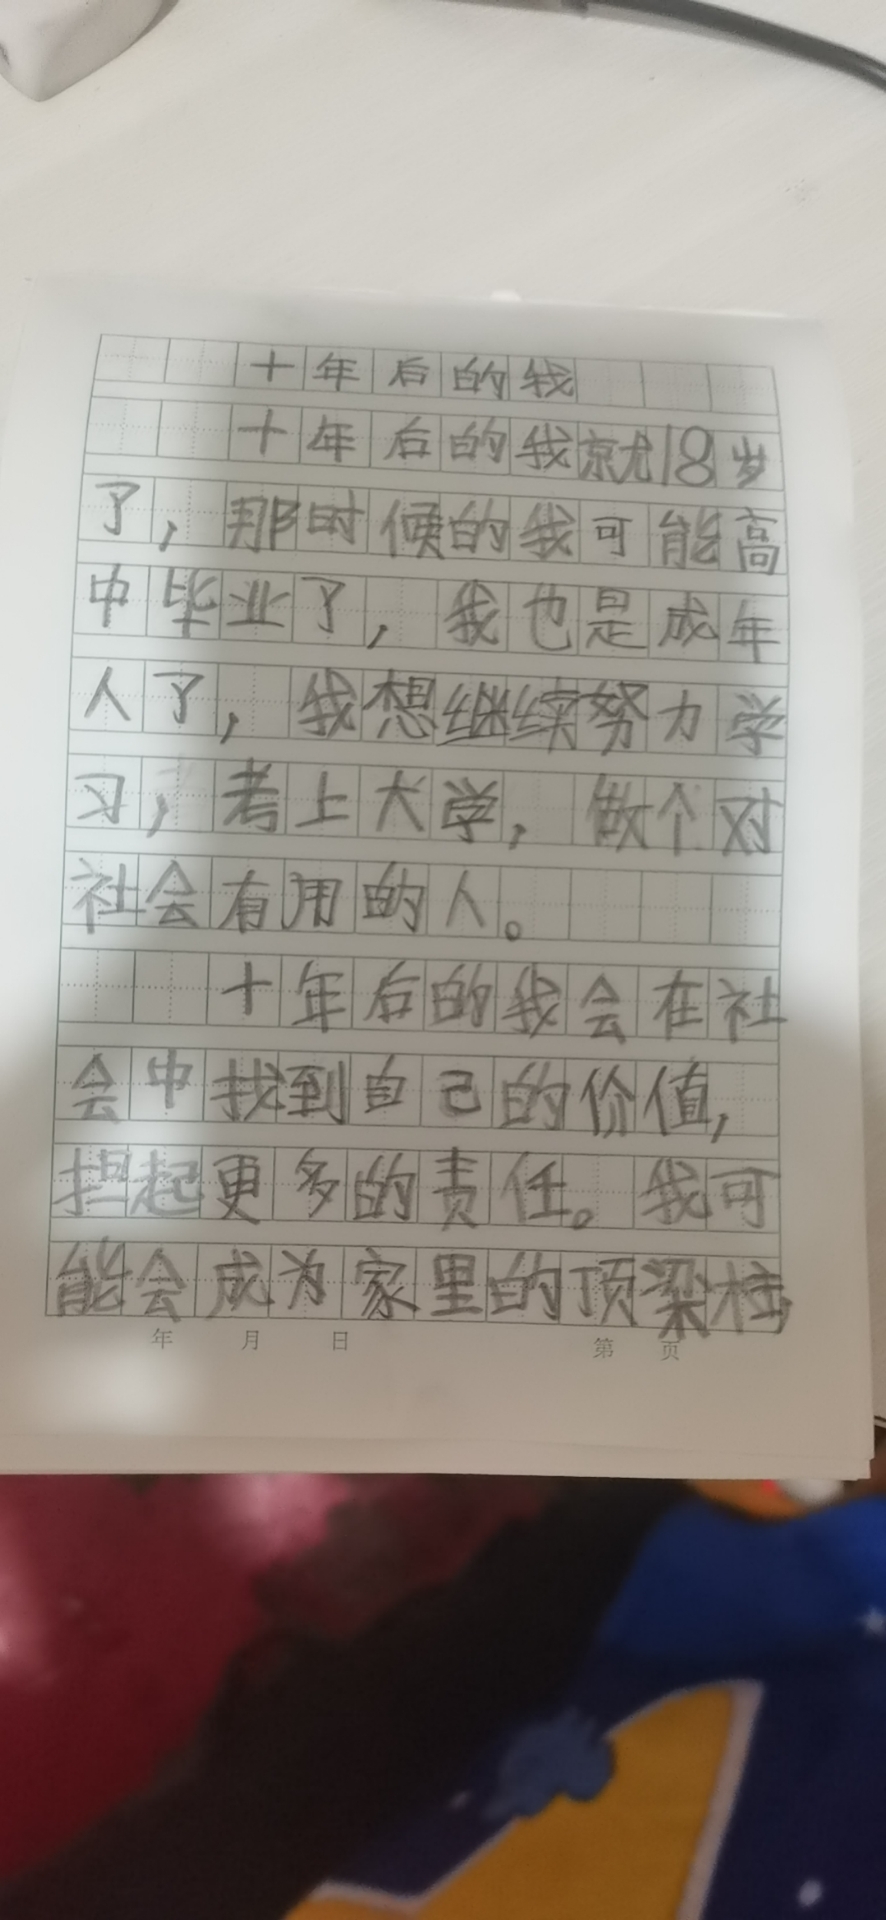 十年后的我
十年后的我就18岁
了，那时候的我可能高
中毕业了，我也是成年
人了，我想继续努力学
习，考上大学，做个对
社会有用的人。
十年后的我会在社
会中找到自己的价值，
担起更多的责任。我可
能会成为家里的顶梁柱，
年 月 日 第 页